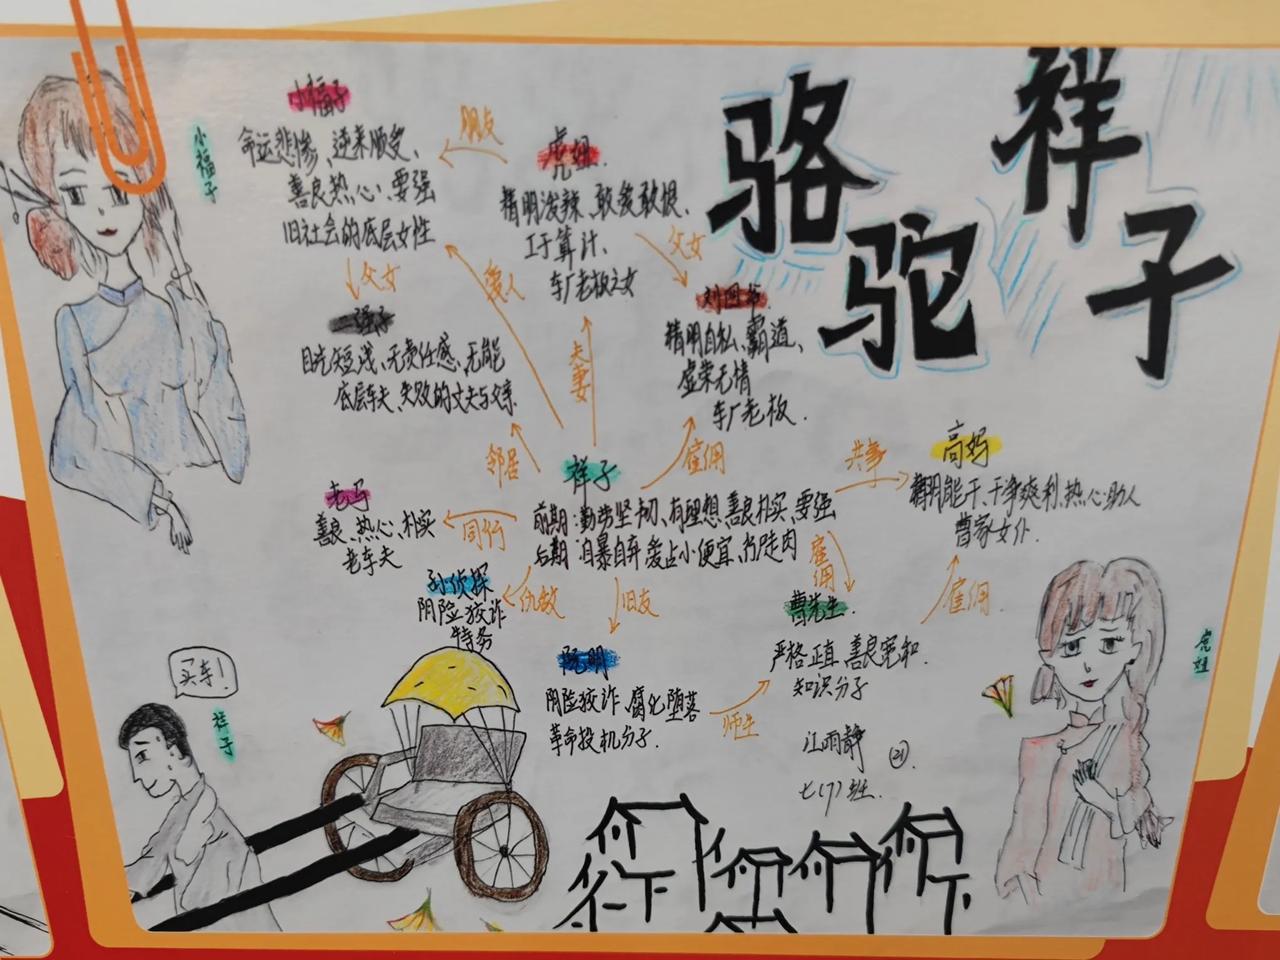 骆驼祥子
小福子
命运悲惨、逆来顺受、
善良热心、要强
旧社会的底层女性
小福子
朋友
虎妞
精明泼辣、敢爱敢恨、
工于算计、
车厂老板之女
父女
刘四爷
精明自私、霸道、
虚荣无情
车厂老板.
父女
二强子
目光短浅、无责任感、无能
底层车夫、失败的丈夫与父亲
爱人
夫妻
邻居
雇佣
祥子
前期:勤劳坚韧、有理想、善良朴实、要强
后期:自暴自弃、爱占小便宜、行尸走肉
共事
高妈
精明能干、干净爽利、热心助人
曹家女仆.
老马
善良、热心、朴实
老车夫
同行
孙侦探
阴险狡诈
特务
仇敌
旧友
雇佣
曹先生.
严格正直、善良宽和.
知识分子
雇佣.
阮明
阴险狡诈、腐化堕落
革命投机分子.
师生
江雨静 21
七(7)班.
买车!
祥子
虎妞